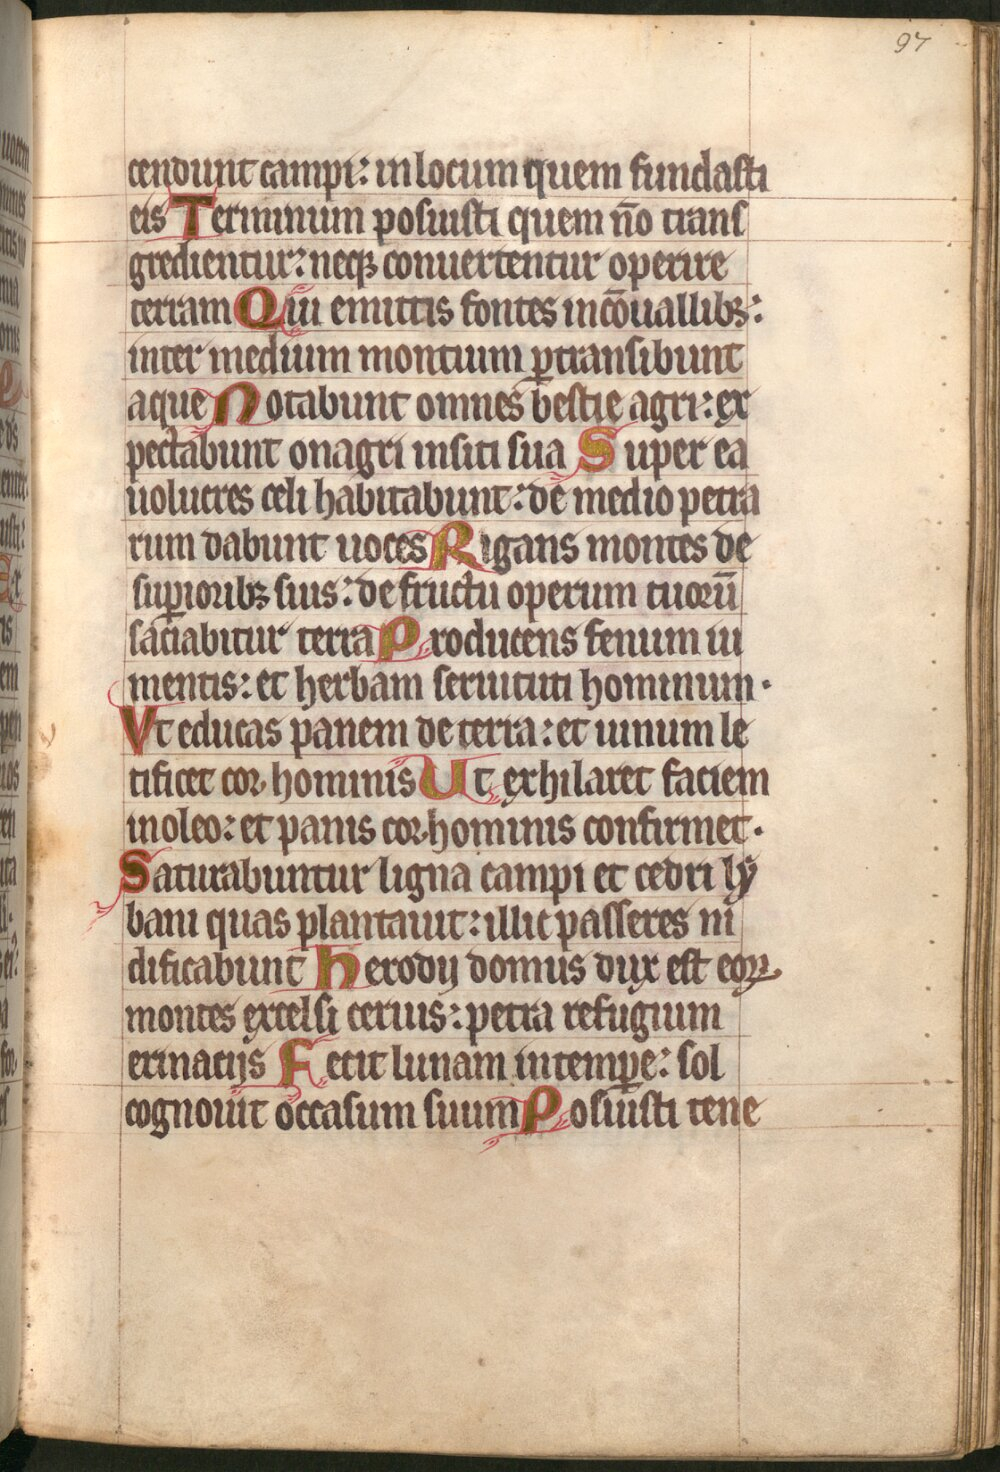 97
cendunt campi: in locum quem fundasti
eis Terminum posuisti quem nō trans
gredientur: neqꝫ conuertentur operire
terram Qui emittis fontes in cōuallibꝫ:
inter medium montium ꝑtransibunt
aque Potabunt omnes bestie agri: ex
pectabunt onagri in siti sua Super ea
uolucres celi habitabunt: de medio petra
rum dabunt uoces Rigans montes de
suꝑioribꝫ suis: de fructu operum tuorū
saciabitur terra Producens fenum iu
mentis: et herbam seruituti hominum.
Vt educas panem de terra: et uinum le
tificet cor hominis Ut exhilaret faciem
in oleo: et panis cor hominis confirmet.
Saturabuntur ligna campi et cedri ly
bani quas plantauit: illic passeres ni
dificabunt Herodij domus dux est eoꝝ
montes excelsi ceruis: petra refugium
erinacijs Fecit lunam in temꝑe: sol
cognouit occasum suum Posuisti tene